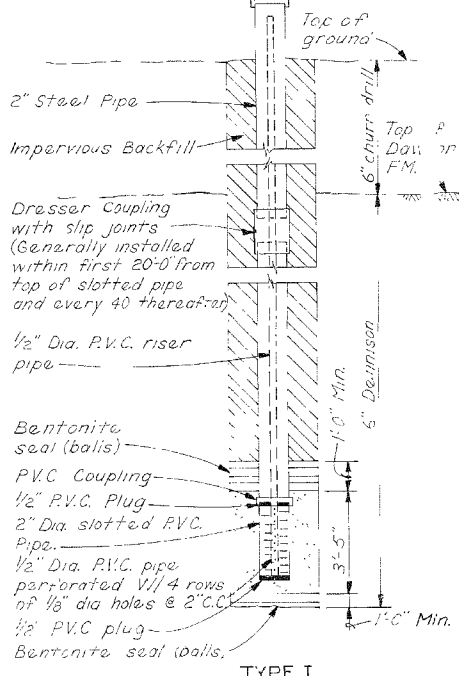 Top of
ground
2" Steel Pipe
Impervious Backfill
6" churn drill
Top
FM.
Dresser Coupling
with slip joints
(Generally installed
within first 20'-0" from
top of slotted pipe
and every 40 thereafter)
1/2" Dia. P.V.C. riser
pipe
6" Dennison
Bentonite
seal (balls)
1'-0" Min.
P.V.C. Coupling
1/2" P.V.C. Plug
2" Dia. slotted P.V.C.
Pipe
3'-5"
1/2" Dia. P.V.C. pipe
perforated W/4 rows
of 1/8" dia holes @ 2" C.C
1/2" PVC plug
1'-0" Min.
Bentonite seal (balls,
TYPE I